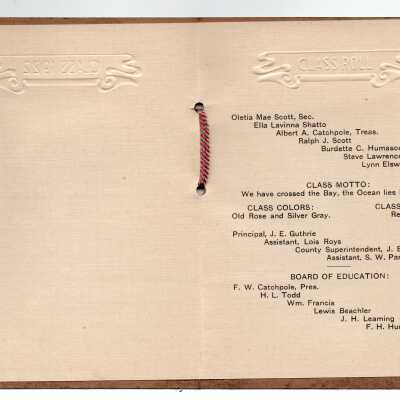 CLASS 1922
CLASS ROLL
Oletia Mae Scott, Sec.
Ella Lavinna Shatto
Albert A. Catchpole, Treas.
Ralph J. Scott
Burdette C. Humason
Steve Lawrence
Lynn Elsw
CLASS MOTTO:
We have crossed the Bay, the Ocean lies
CLASS COLORS:
Old Rose and Silver Gray.
CLASS
Re
Principal, J. E. Guthrie
Assistant, Lois Roys
County Superintendent, J. E
Assistant, S. W. Par
BOARD OF EDUCATION:
F. W. Catchpole, Pres.
H. L. Todd
Wm. Francia
Lewis Beachler
J. H. Leaming
F. H. Hu